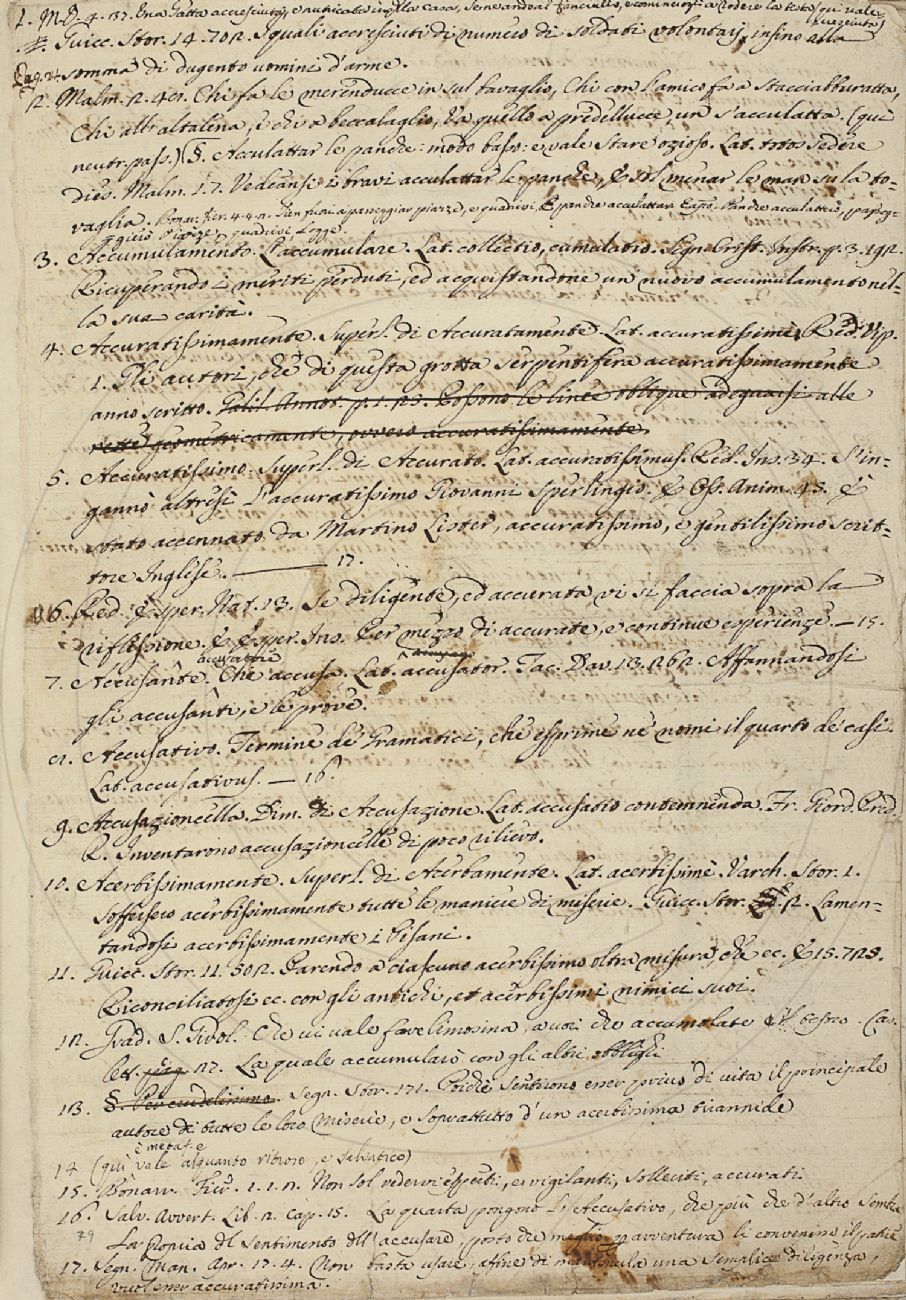 1. M.B. 9. 137. Una Gatta accresciuta, e nutricata in quella casa, se ne andò al fanciullo, e cominciogli a rodere la testa (qui vale
cresciuta)
Guicc. Stor. 14. 702. I quali accresciuti di numero di soldati volontarj, insino alla
Pag. 24. somma di dugento uomini d'arme.
2. Malm. 2. 48. Chi fa le merenducce in sul bavaglio, Chi con l'amico fa a stacciabburatta,
Chi all'altalena, e chi a beccalaglio, Va quello a predellucce, un s'acculatta. (qui
neutr. pass.) §. Acculattar le panche: modo basso: e vale Stare ozioso. Lat. totos sedere
dies. Malm. 1. 7. Vedeansi i bravi acculattar le panche, E sol menar le man su la to-
vaglia. Bonar. Fier. 4. 4. 2. a passeggiar piazze, e quadrivi, E panche acculattar
Piazze, quadrivi, Logge.
3. Accumulamento. L'accumulare. Lat. collectio, cumulatio. Segn. Crist. Instr. p. 3. 192.
Ricuperando i meriti perduti, ed acquistandone un nuovo accumulamento nel-
la sua carità.
4. Accuratissimamente. Superl. di Accuratamente. Lat. accuratissimè. Red. Vip.
1. Gli autori, che di questa grotta serpentifera accuratissimamente
anno scritto. Galil. Annot. p. 1. 23. Possono le linee oblique adeguarsi alle
rette geometricamente, ovvero accuratissimamente.
5. Accuratissimo. Superl. di Accurato. Lat. accuratissimus. Red. Ins. 34. S'in-
gannò altresì l'accuratissimo Giovanni Sperlingio. E Oss. Anim. 45. È
stato accennato da Martino Lister, accuratissimo, e gentilissimo scrit-
tore Inglese. — 17.
6. Red. Esper. Nat. 13. Se diligente, ed accurata vi si faccia sopra la
riflessione. E Esper. Ins. Per mezzo di accurate, e continue esperienze. — 15.
7. Accusante. Che accusa. Lat. accusator. Tac. Dav. 13. 262. Affannandosi
gli accusanti, e le prove.
8. Accusativo. Termine de' Gramatici, che esprime ne' nomi il quarto de' casi.
Lat. accusativus. — 16.
9. Accusazioncella. Dim. di Accusazione. Lat. accusatio contemnenda. Fr. Giord. Pred.
R. Inventarono accusazioncelle di poco rilievo.
10. Acerbissimamente. Superl. di Acerbamente. Lat. acerbissimè. Varch. Stor. 1.
Soffersero acerbissimamente tutte le maniere di miserie. Guicc. Stor. 2. Lamen-
tandosi acerbissimamente i Pisani.
11. Guicc. Stor. 11. 502. Parendo a ciascuno acerbissimo oltra misura, che ec. E 15. 723.
Riconciliatosi ec. con gli antichi, et acerbissimi nimici suoi.
12. Grad. S. Girol. Che vi vale fare limosina, a voi che accumolate il tesoro. Cas.
lett. 27. La quale accumularò con gli altri obblighi
13. §. Per crudelissimo. Segn. Stor. 171. Poichè sentirono esser privo di vita il principale
autore di tutte le loro miserie, e soprattutto d'un acerbissima tirannide
è metaf. e
14 (qui vale alquanto ritroso, e salvatico)
15. Bonarr. Fier. 1. 1. 2. Non sol vedervi esperti, e vigilanti, solleciti, accurati.
16. Salv. Avvert. Lib. 2. cap. 15. La quarta pongono l'Accusativo, che più che d'altro sembra
79 la propria del sentimento dell'accusare, posto che meglio per avventura li convenire il patire
17. Segn. Man. Apr. 17. 4. Non basta usare, affine di una semplice diligenza,
vuol esser accuratissima.